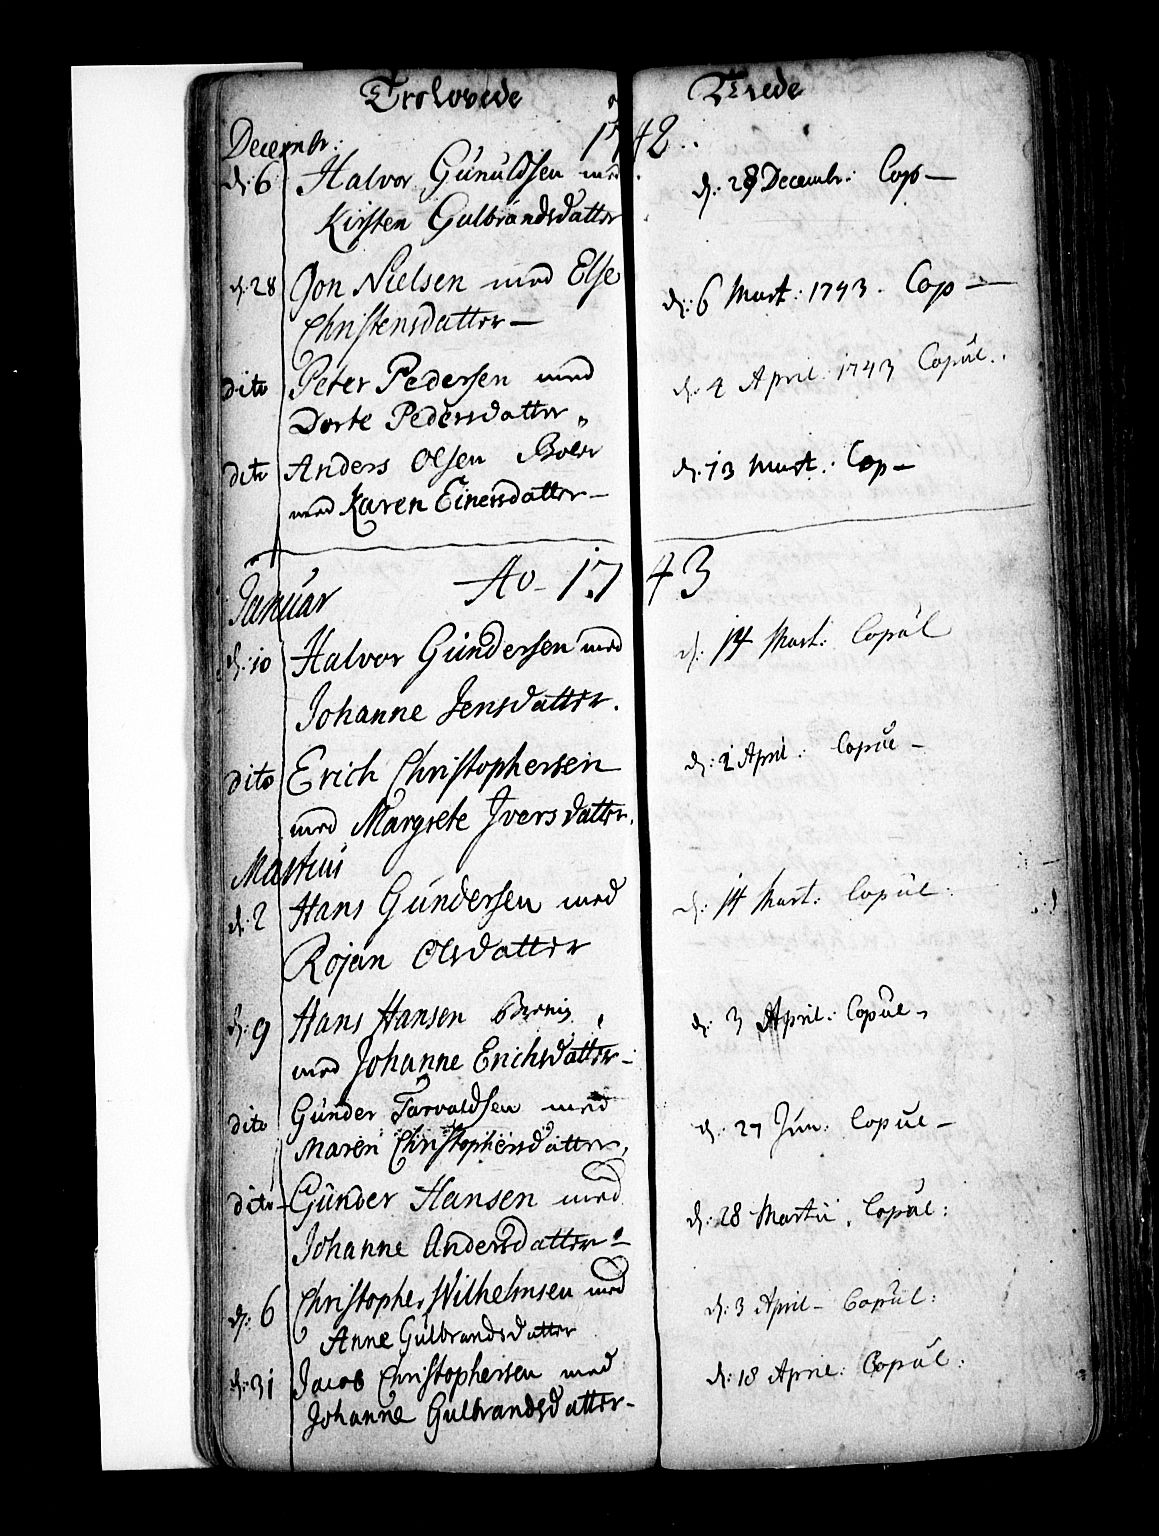 Trolovede Viede
Decembr: 1742.
d: 6 Halvor Gunuldsen med d: 28 Decembr: Cop—
Kirsten Gulbrandsdatter
d: 28 Jon Nielsen med Else d: 6 Mart: 1743. Cop—
Christensdatter—
dito Peter Pedersen med d: 2 April: 1743 Copul.
Dorte Pedersdatter
dito Anders Olsen d: 13 Mart: Cop—
med Karen Einersdatter—
Januar Ao- 1743
d: 10 Halvor Gundersen med d: 14 Mart: Copul
Johanne Jensdatter.
dito Erich Christophersen d: 2 April: Copul—
med Margrete Iversdatter.
Martius
d: 2 Hans Gundersen med d: 14 Mart: Copul:
Rojan Olsdatter
d: 9 Hans Hansen d: 3 April: Copul-
med Johanne Erichsdatter-
dito Gunder Tarvaldsen med d: 27 Jun: Copul—
Maren Christophersdatter,
dito- Gunder Hansen med d: 28 Martii. Copul:
Johanne Andersdatter-
d: 6 Christopher Wilhelmsen med d: 3 April- Copul:
Anne Gulbrandsdatter
d: 31 Jacob Christophersen med d: 18 April: Copul:
Johanne Gulbrandsdatter-